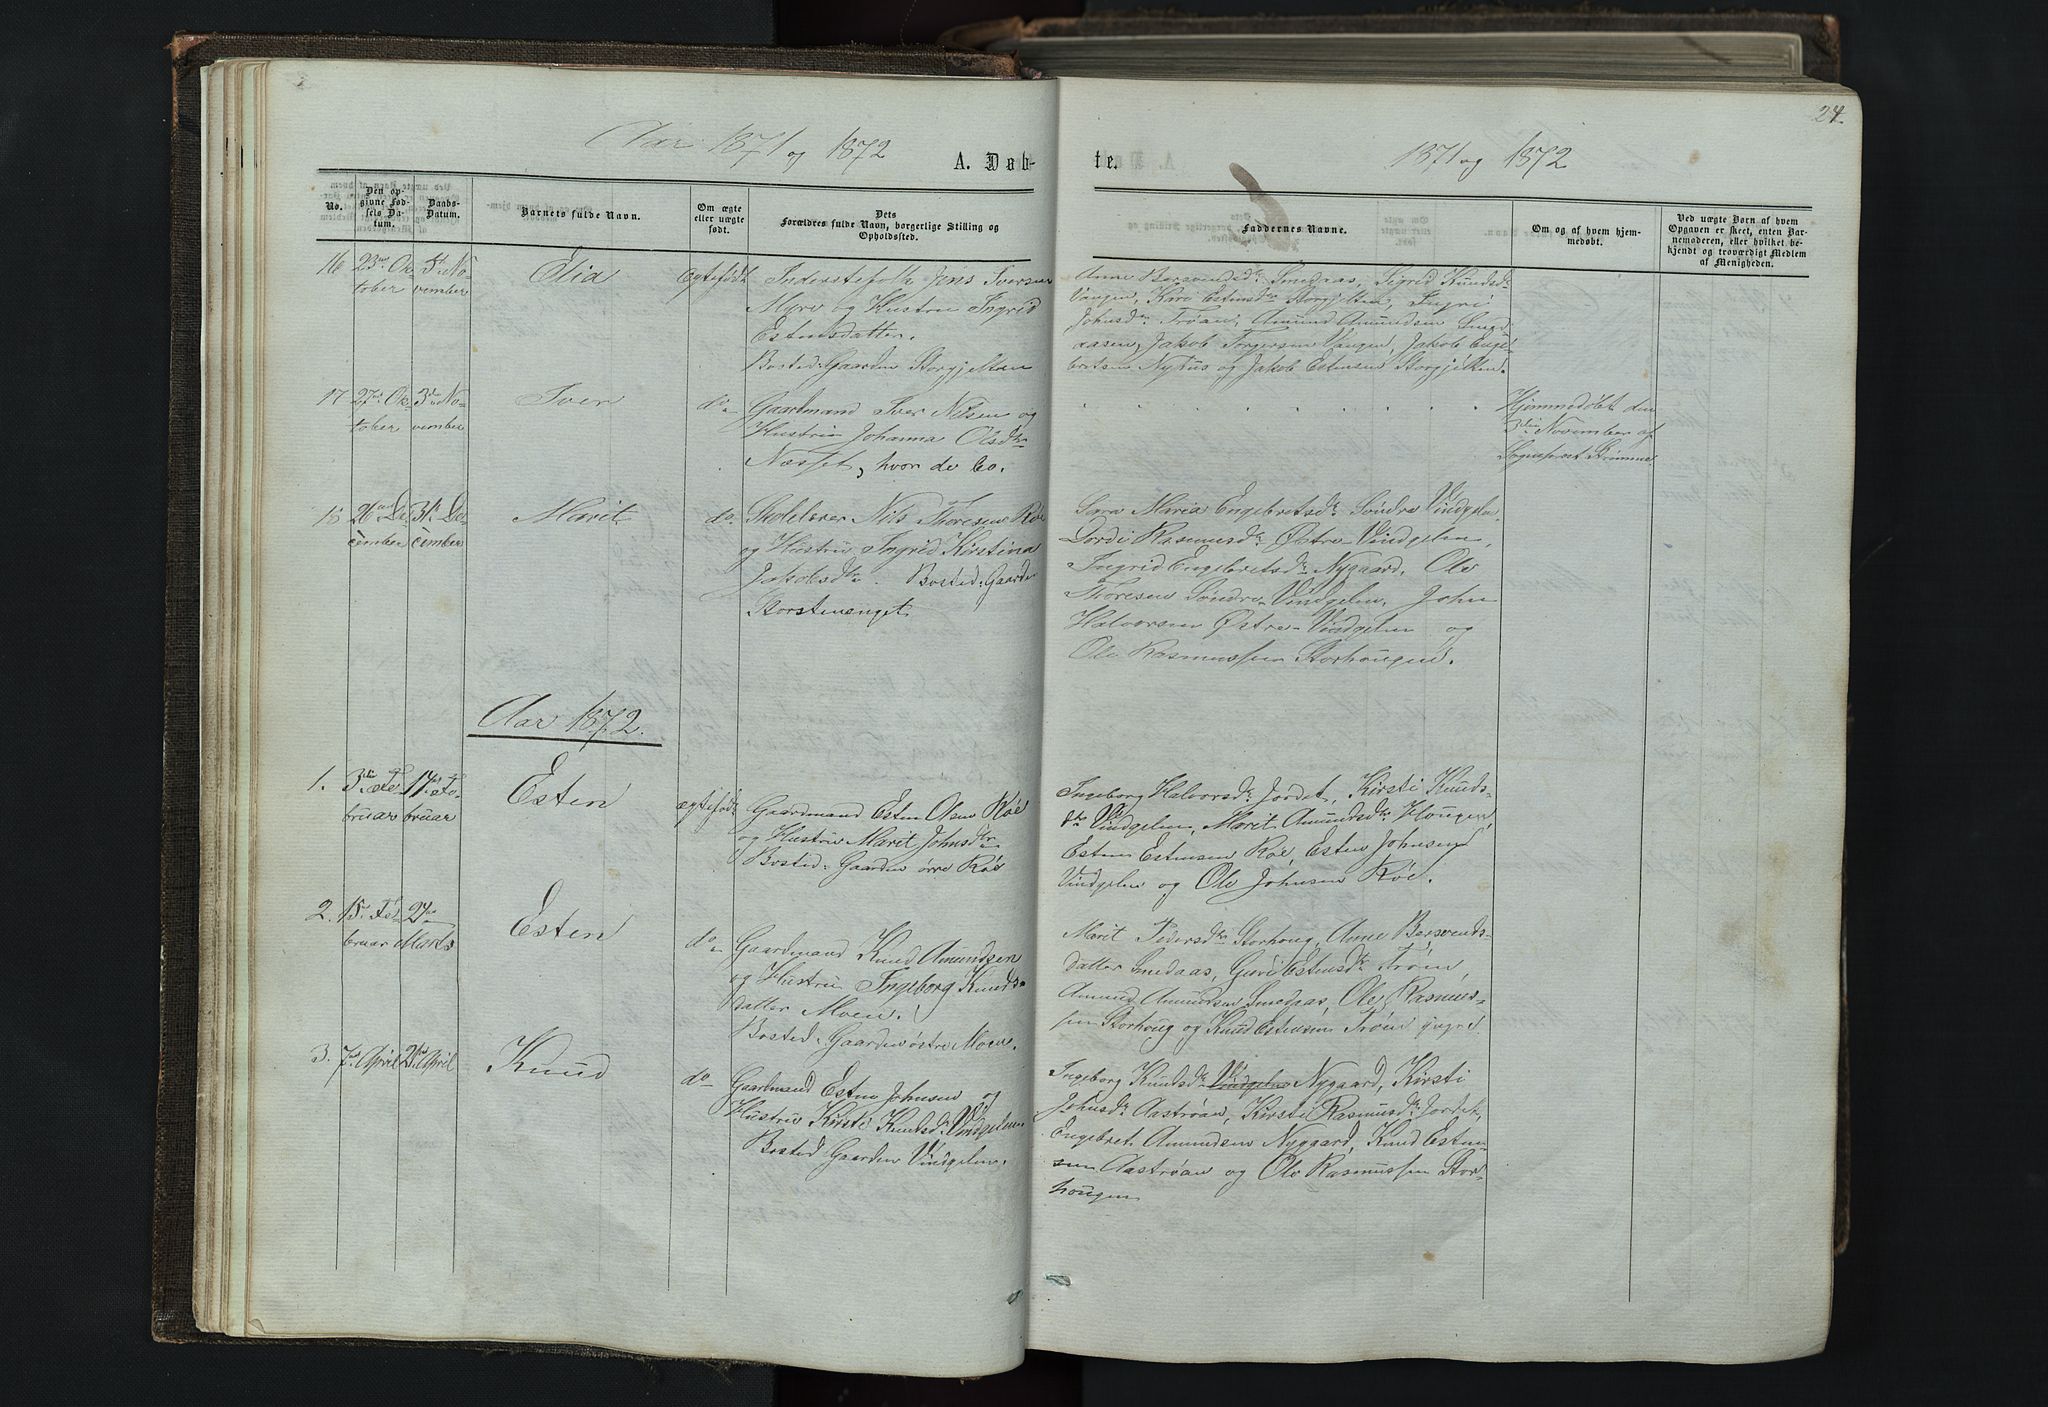 24.
Aar 1871 og 1872
A. Døb-
te.
1871 og 1872
No.
Den op-
givne Fød-
sels Da-
tum.
Daabs-
Datum.
Barnets fulde Navn.
Om ægte
eller uægte
født.
Dets
Forældres fulde Navn, borgerlige Stilling og
Opholdssted.
Faddernes Navne.
Om og af hvem hjem-
medøbt.
Ved uægte Børn af hvem
Opgaven er skeet, enten Bar-
nemoderen, eller hvilket be-
kjendt og troværdigt Medlem
af Menigheden.
16
23de Ok-
tober
5te No-
vember
Elia
Egtefødt
Inderstefolk Jens Iversen
Myre og Hustru Ingrid
Estensdatter.
Bosted: Gaarden Storgjelten
Anne Bersvendsdr Smedaas, Sigrid Knudsdr
Vangen, Kari Estensdr Storgjelten, Ingri
Johnsdr Trøan, Amund Amundsen Smed-
aasen, Jakob Torgersen Vangen, Jakob Enge-
bretsen Nyhus og Jakob Estensen Storgjelten.
17
27de Ok-
tober
3die No-
vember
Iver
do
Gaardmand Iver Nilsen og
Hustru Johanna Olsdtr
Næsset, hvor de bo.
Hjemmedøbt den
3die November af
Sogneprest
18
26de De-
cember
31te De-
cember
Marit
do
Skolelærer Nils Thoresen Røe
og Hustru Ingrid Kirstina
Jakobsdtr. Bosted: Gaarden
Storstenænget
Sara Maria Engebretsdr Søndre Vindgelen,
Dordi Rasmusdr Østre-Vindgelen,
Ingrid Engebretsdr Nygaard, Ole
Thoresen Søndre-Vindgelen, John
Halvorsen Østre-Vindgelen og
Ole Rasmussen Storhougen.
Aar 1872.
1.
3die Fe-
bruar
17de Fe-
bruar
Esten
egtefødt
Gaardmand Esten Olsen Røe
og Hustru Marit Johnsdtr
Bosted: Gaarden øvre Røe
Ingeborg Halvorsdr Jordet, Kirsti Knuds-
dtr Vindgelen, Marit Amundsdtr Hougen,
Esten Estensen Røe, Esten Johnsen
Vindgelen og Ole Johnsen Røe.
2.
15de Fe-
bruar
24de
Marts
Esten
do
Gaardmand Knud Amundsen
og Hustru Ingeborg Knuds-
datter Moen.
Bosted: Gaarden østre Moen.
Marit Pedersdtr Storhoug, Anne Bersvends-
datter Smedaas, Guri Estensdr Trøen,
Amund Amundsen Smedaas, Ole Rasmus-
sen Storhoug og Knud Estensen Trøen
3.
7de April
21de April
Knud
do
Gaardmand Esten Johnsen og
Hustru Kirsti Knudsdr Vindgelen.
Bosted Gaarden Vindgelen.
Ingeborg Knudsdr Vindgelen Nygaard, Kirsti
Johnsdr Aastrøan, Kirsti Rasmusdr Jordet,
Engebret Amundsen Nygaard, Knud Esten-
sen Aastrøan og Ole Rasmussen Stor-
hougen